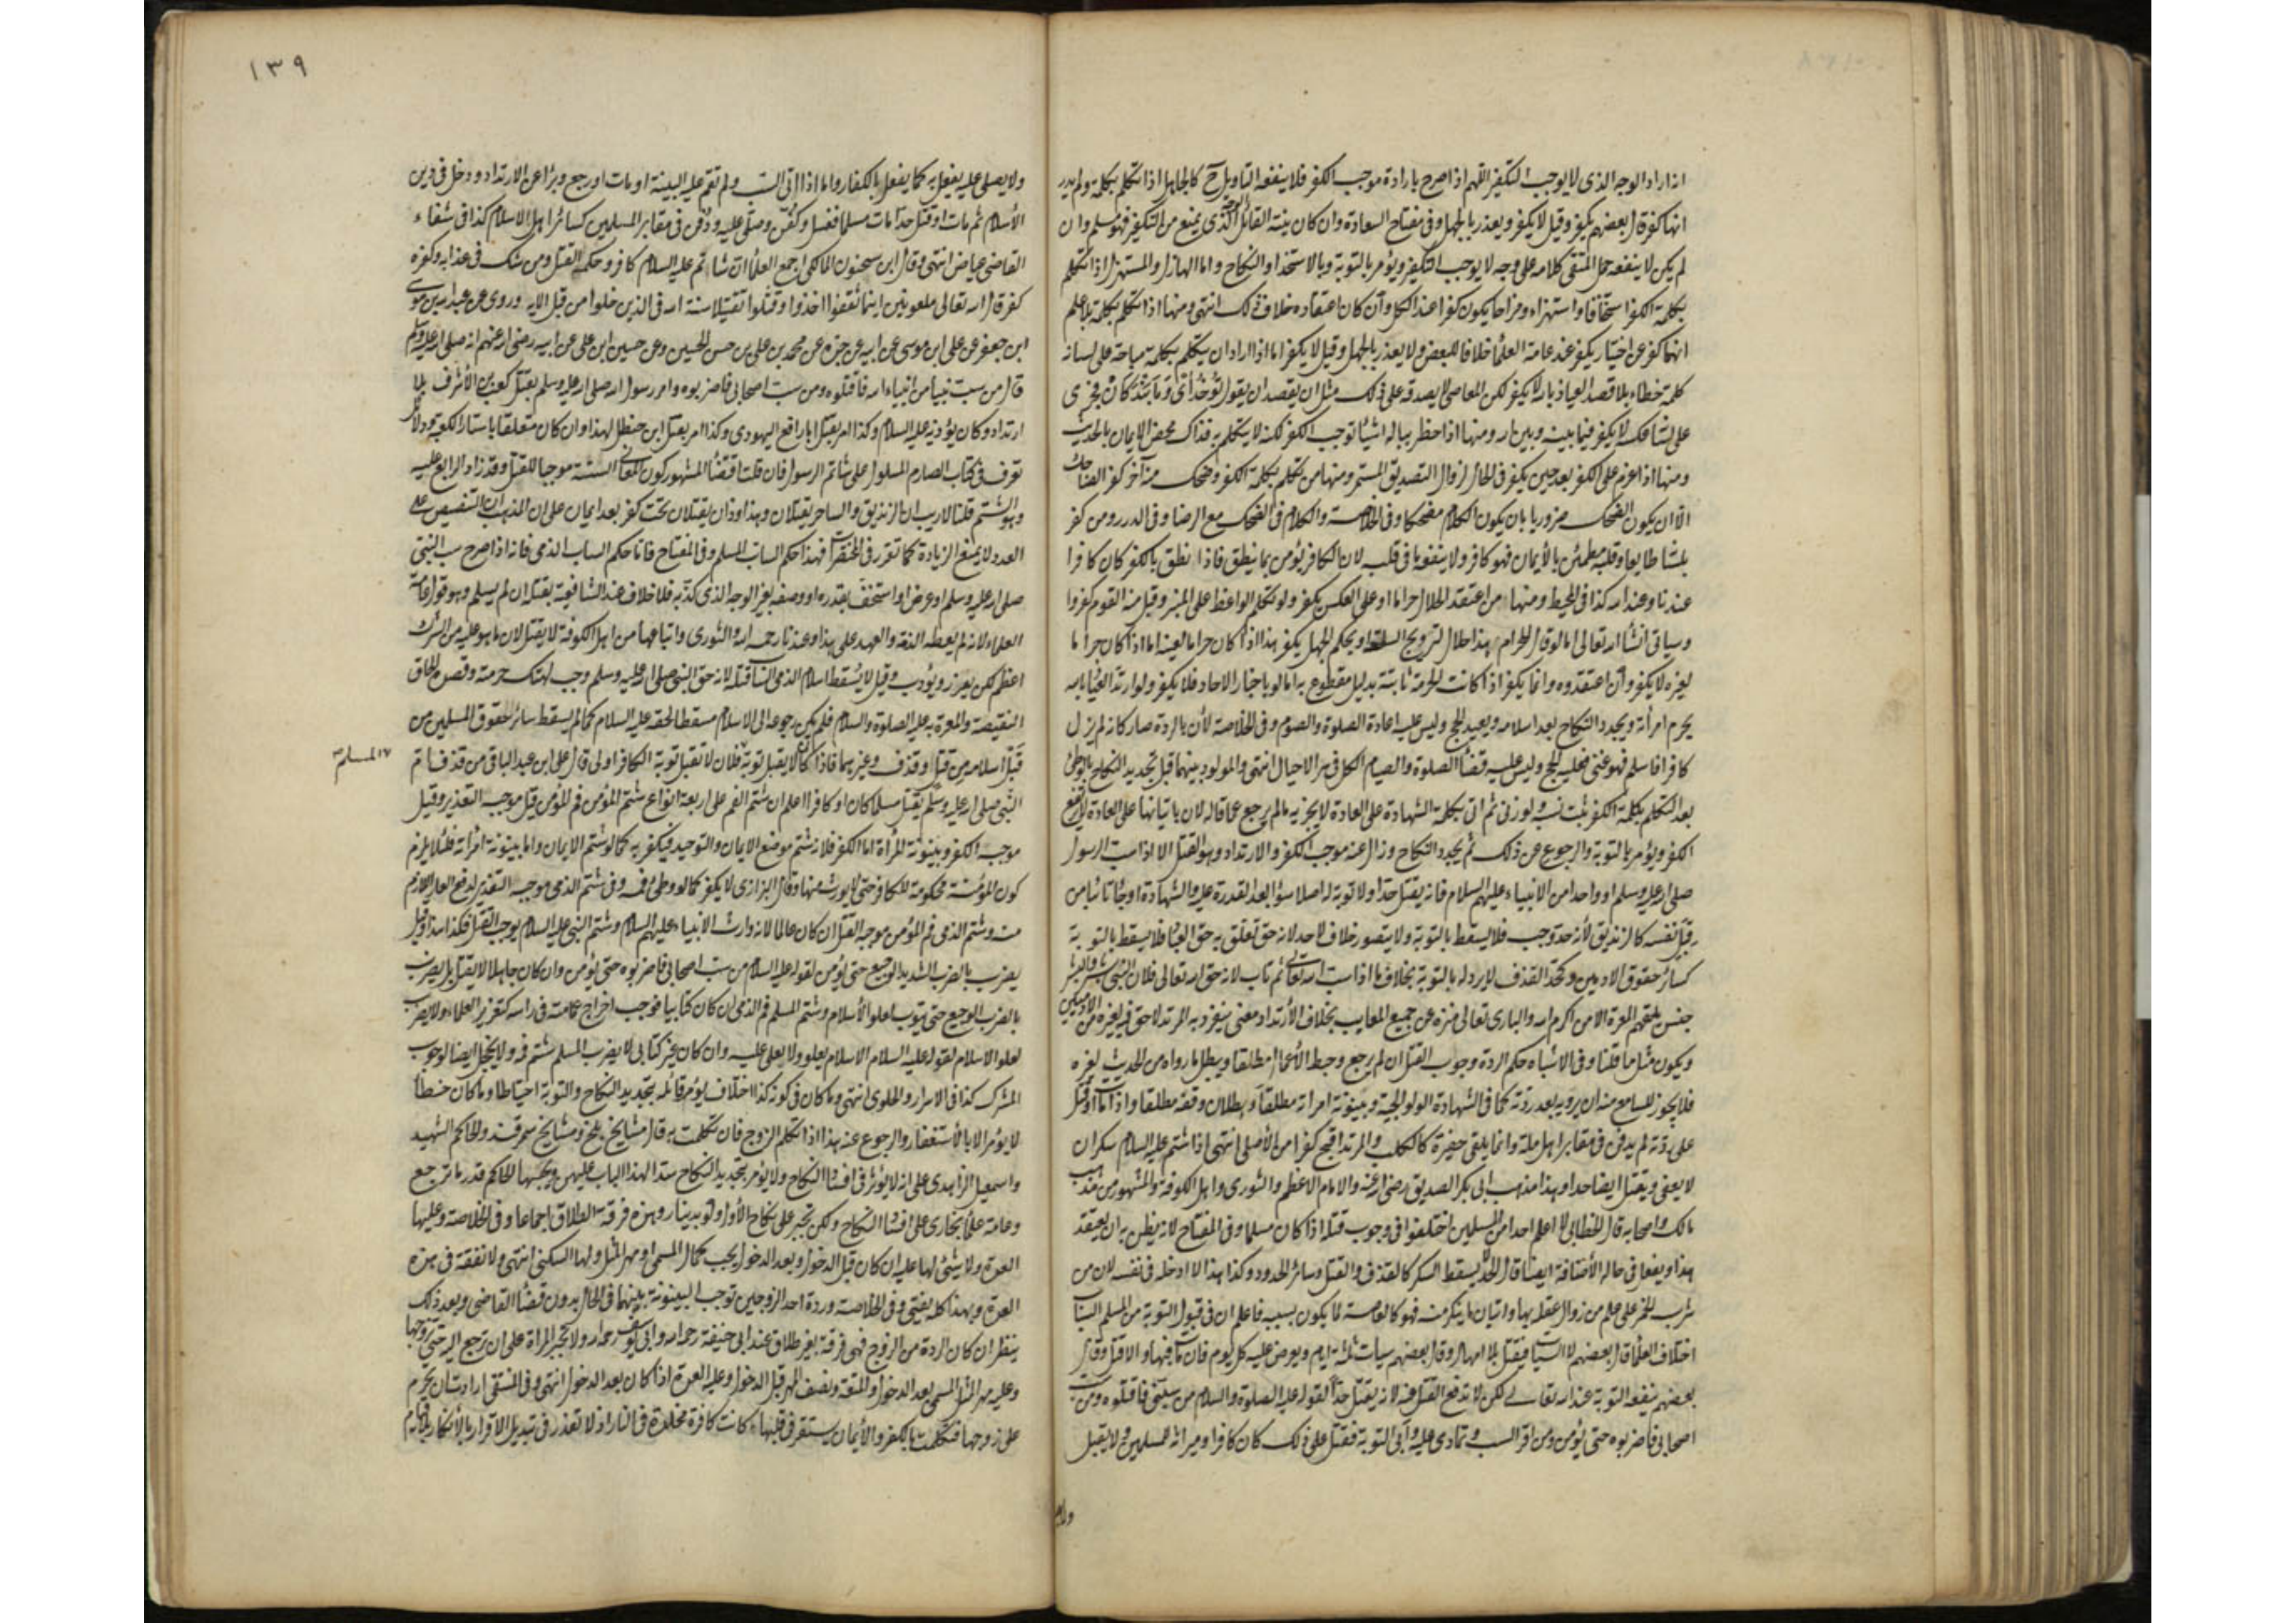 اذا اراد الوجه الذى لا يوجب التكفير اللهم اذا صرح بارادة موجب الكفر فلا ينفعه التاويل ح كالجاهل اذا تكلم بكلمة ولم يدر
انها كفر قال بعضهم يكفر وقيل لا يكفر ويعذر بالجهل وفى مفتاح السعادة وان كان نية القائل الوجه الذى يمنع من التكفير فهو مسلم وان
لم يكن لا ينفعه حمل المفتى كلامه على وجه لا يوجب التكفير ويؤمر بالتوبة وبالاستخذاو النكاح واما الهازل والمستهزل اذا تكلم
بكلمة الكفر استخفافا واستهزاء ومزاحا يكون كفرا عند الكل وان كان اعتقاده خلاف ذلك انتهى ومنها اذا تكلم بكلمة بلا علم
انها كفر عن اختيار يكفر عند عامة العلماء خلافا للبعض ولا يعذر بالجهل وقيل لا يكفر اما اذا اراد ان يتكلم بكلمة مباحة على لسانه
كلمة خطاء بلا قصد العياذ بالله لا يكفر لكن القاضى لا يصدقه على ذلك مثل ان يقصد ان يقول
لا يكفر فيما بينه وبين الله ومنها اذا خطر بباله اشياء توجب الكفر لكنه لا يتكلم به فذاك محض الايمان بالحديث
ومنها اذا عزم على الكفر بعد حين يكفر فى الحال لزوال التصديق المستمر ومنها من تكلم بكلمة الكفر وضحك منه آخر كفر الضاحك
الا ان يكون الضحك ضروريا بان يكون الكلام مضحكا وفى الخلاصة والكلام فى الضحك مع الرضا وفى الدرر ومن كفر
بلسانه طايعا وقلبه مطمئن بالايمان فهو كافر ولا ينفعه ما فى قلبه لان الكافر يؤمن بما ينطق فاذا نطق بالكفر كان كافرا
عندنا وعند الله كذا فى المحيط ومنها من اعتقد الحلال حراما او على العكس يكفر ولو تكلم الواعظ على المنبر وقبل منه القوم كفروا
وسياتى انشا الله تعالى اما لو قال الحرام هذا حلال لترويج السلعة او بحكم الجهل لا يكفر هذا اذا كان حراما لعينه اما اذا كان حراما
لغيره لا يكفر وان اعتقدوه وانما يكفر اذا كانت الحرمة ثابتة بدليل مقطوع به اما لو باخبار الاحاد فلا يكفر ولو ارتد العياذ بالله
يحرم امرأته ويجدد النكاح بعد اسلامه ويعيد الحج وليس عليه اعادة الصلوة والصوم وفى الخلاصة لأن بالردة صار كانه لم يزل
كافرا فاسلم فهو غنى فعليه الحج وليس عليه قضاء الصلوة والصيام الكل فى الاحيال انتهى والمولود بينهما قبل تجديد النكاح بالوطئ
بعد التكلم بكلمة الكفر ثبت نسبه ولو زنى ثم اتى بكلمة الشهادة على العادة لا يجزيه ما لم يرجع عما قاله لان باتيانها على العادة لا يرتفع
الكفر ويؤمر بالتوبة والرجوع عن ذلك ثم يجدد النكاح وزال عنه موجب الكفر والارتداد وهو القتل الا اذا سب الرسول
صلى الله عليه وسلم او واحدا من الانبياء عليهم السلام فانه يقتل حدا ولا توبة له اصلا سواء بعد القدرة عليه والشهادة او جاء تائبا من
قبل نفسه كالزنديق لأنه حد وجب فلا يسقط بالتوبة ولا يتصور خلاف لاحد لانه حق تعلق به حق العبد فلا يسقط بالتوبة
كسائر حقوق الادميين وكحد القذف لا يزول بالتوبة بخلاف ما اذا سب الله تعالى ثم تاب لانه حق الله تعالى فلان النبى بشر والبشر
جنس يلحقهم المعرة الا من اكرم الله والبارى تعالى منزه عن جميع المعايب بخلاف الأرتداد معنى ينفرد به المرتد لا حق فيه لغيره من الادميين
ويكون مثل ما قلنا وفى الاشباه حكم الردة وجوب القتل ان لم يرجع وحبط الأعمال مطلقا ويبطل ما رواه من الحديث لغيره
فلا يجوز للسامع منه ان يرويه بعد ردته كما فى الشهادة الولوالجية وبينونة امراته مطلقا وبطلان وقفه مطلقا واذا مات او قتل
على ردته لم يدفن فى مقابر اهل ملة وانما يلقى فى حفيرة كالكلب والمرتد اقبح كفرا من الأصلى انتهى اذا شتم عليه السلام سكران
لا يعفى ويقتل ايضا حدا وهذا مذهب ابى بكر الصديق رضى الله عنه والامام الاعظم والثورى واهل الكوفة والمشهور من مذهب
مالك واصحابه قال الخطابى لا اعلم احدا من المسلمين اختلفوا فى وجوب قتله اذا كان مسلما وفى المفتاح لانه يظن به ان يعتقد
هذا ويفعل فى حاله الأضافة ايضا قال الحد لا يسقط السكر كالقذف والقتل وسائر الحدود وكذا هذا لا ادخله فى نفسه لان من
شرب الخمر على علم من زوال عقله بها واتيان ما ينكر منه فهو كالعاصى لما يكون بسببه فاعلم ان فى قبول التوبة من المسلم الساب
اختلاف العلماء قال بعضهم لا يستتاب فيقتل بلا امهال وقال بعضهم يستتاب ثلثة ايام ويعرض عليه كل يوم فان تاب فبها والا قتل وقال
بعضهم ينفعه التوبة عند الله تعالى لكن لا تدفع القتل عنه لانه يقتل حدا لقوله عليه الصلوة والسلام من سبنى فاقتلوه ومن سب
اصحابى فاضربوه حتى يؤمن ومن اقر السب وتمادى عليه وأبى التوبة فقتل على ذلك كان كافرا وميراثه للمسلمين ولا يقبل
١٣٩
ولا يصلى عليه يفعل به كما يفعل بالكفار واما اذا اتى السب ولم تقم عليه البينة او مات او رجع وبرأ عن الارتداد ودخل فى دين
الأسلام ثم مات او قتل حدا مات مسلما فغسل وكفن وصلى عليه ودفن فى مقابر المسلمين كسائر اهل الاسلام كذا فى شفاء
القاضى عياض انتهى وقال ابن سحنون المالكى اجمع العلماء ان شاتم عليه السلام كافر وحكمه القتل ومن شك فى عذابه وكفره
كفر قال الله تعالى ملعونين اينما ثقفوا اخذوا وقتلوا تقتيلا سنة الله فى الذين خلوا من قبل الاية وروى عن عبد الله بن موسى
ابن جعفر عن على ابن موسى عن ابيه عن جده عن محمد بن على بن حسن الحسين وعن حسين ابن على عن ابيه رضى الله عنهم انه صلى الله عليه وسلم
قال من سب نبيا من انبياء الله فاقتلوه ومن سب اصحابى فاضربوه وامر رسول الله صلى الله عليه وسلم بقتل كعب بن الأشرف بلا
ارتداد وكان يؤذيه عليه السلام وكذا امر بقتل ابا رافع اليهودى وكذا امر بقتل ابن خطل لهذا وان كان متعلقا باستار الكعبة ودلائل
تعرف فى كتاب الصارم المسلول على شاتم الرسول فان قلت المشهور كون المعانى الستة موجبا للقتل وقد زاد الرابع عليه
وهو الشتم قلنا لا ريب ان الزنديق والساحر يقتلان وهذا وذان يقتلان تحت كفر بعد ايمان على ان المذهب ان التنصيص على
العدد لا يمنع الزيادة كما تقرر فى المختصرات فهذا حكم الساب المسلم وفى المفتاح فاما حكم الساب الذمى فانه اذا صرح سب النبى
صلى الله عليه وسلم او عرض او استخف بقدره او وصفه بغير الوجه الذى كذبه فلا خلاف عند الشافعية بقتله ان لم يسلم وهو قول عامة
العلماء لانه لم يعطه الذمة والعهد على هذا وعندنا رحمه الله والثورى واتباعهما من اهل الكوفة لا يقتل لان ما هو عليه من الشرك
اعظم لكن يعزر ويؤدب وقيل لا يسقط اسلام الذمى الساب قتله لانه حق النبى صلى الله عليه وسلم وجب لهتك حرمته وقصده الحاق
النقيصة والمعرة به عليه الصلوة والسلام فلم يكن رجوعه الى الاسلام مسقطا لحقه عليه السلام كما لم يسقط سائر حقوق المسلمين من
قبل اسلامه من قتل او قذف وغيرهما فاذا كان لا يقبل توبة فلان لا تقبل توبة الكافر اولى قال على ابن عبد الباقى من قذف ام
المسلم
النبى صلى الله عليه وسلم يقتل مسلما كان او كافرا اعلم ان شتم الفم على اربعة انواع شتم المؤمن فم المؤمن قيل موجبه التعذير وقيل
موجبه الكفر وبينونة المرأة اما الكفر فلانه شتم موضع الايمان والتوحيد فيكفر به كما لو شتم الايمان واما بينونة امراته فلئلا يلزم
كون المؤمنة محكومة للكافر حتى لا يورث منها وقال البزازى لا يكفر كما لو وطئ وفى شتم الذمى موجبه التعذير لدفع العار اللازم
منه وشتم الذمى فم المؤمن موجبه القتل ان كان عالما لانه وارث الانبياء عليهم السلام وشتم النبى عليه السلام يوجب القتل فكذا هذا وقيل
يضرب بالضرب الشديد الوجيع حتى يؤمن لقوله عليه السلام من سب اصحابى فاضربوه حتى يؤمن وان كان جاهلا لا يقتل بل يضرب
بالضرب الوجيع حتى يتوب لعلو الأسلام وشتم المسلم فم الذمى ان كان كتابيا فموجبه اخراج عمامته فى راسه كتعزير العلماء ولا يضرب
لعلو الاسلام لقوله عليه السلام الاسلام يعلو ولا يعلى عليه وان كان غير كتابى لا يضرب المسلم شتم فمه ولا يخجل ايضا لوجوب
الشرك كذا فى الاسرار والحلوى انتهى وما كان فى كونه كفرا اختلاف يؤمر قائله بتجديد النكاح والتوبة احتياطا وما كان خطأ
لا يؤمر الا بالأستغفار والرجوع عنه هذا اذا تكلم الزوج فان تكلمت به قال مشايخ بلخ ومشايخ سمرقند والحاكم الشهيد
واسمعيل الزاهدى على انه لا يؤثر فى افساد النكاح ولا يؤمر بتجديد النكاح سدا لهذا الباب عليهن ويحبسها الحاكم قدر ما ترجع
وعامة علماء بخارى على افساد النكاح ولكن تجبر على نكاح الأول ولو بدينار وهذه فرقة الطلاق اجماعا وفى الخلاصة وعليها
العدة ولا شئ لها عليه ان كان قبل الدخول وبعد الدخول يجب كمال المسمى او مهر المثل ولها السكنى انتهى ولا نفقة فى هذه
العدة وبهذا كله يفتى وفى الخلاصة وردة احد الزوجين توجب البينونة بينهما فى الحال بدون قضاء القاضى وبعد ذلك
ينظر ان كان الردة من الزوج فهى فرقة بغير طلاق عند ابى حنيفة رحمه الله وابى يوسف رحمه الله ولا يجبر المراة على ان ترجع اليه حتى تزوجها
وعليه مهر المثل المسمى بعد الدخول والمتعة ونصف المهر قبل الدخول وعليه العدة اذا كان بعد الدخول انتهى وفى المنتقى ارادت ان يحرم
على زوجها فتكلمت بالكفر والأيمان يستقر فى قلبها كانت كافرة مخلدة فى النار اذ لا تعذر فى تبديل الاقرار بالأنكار